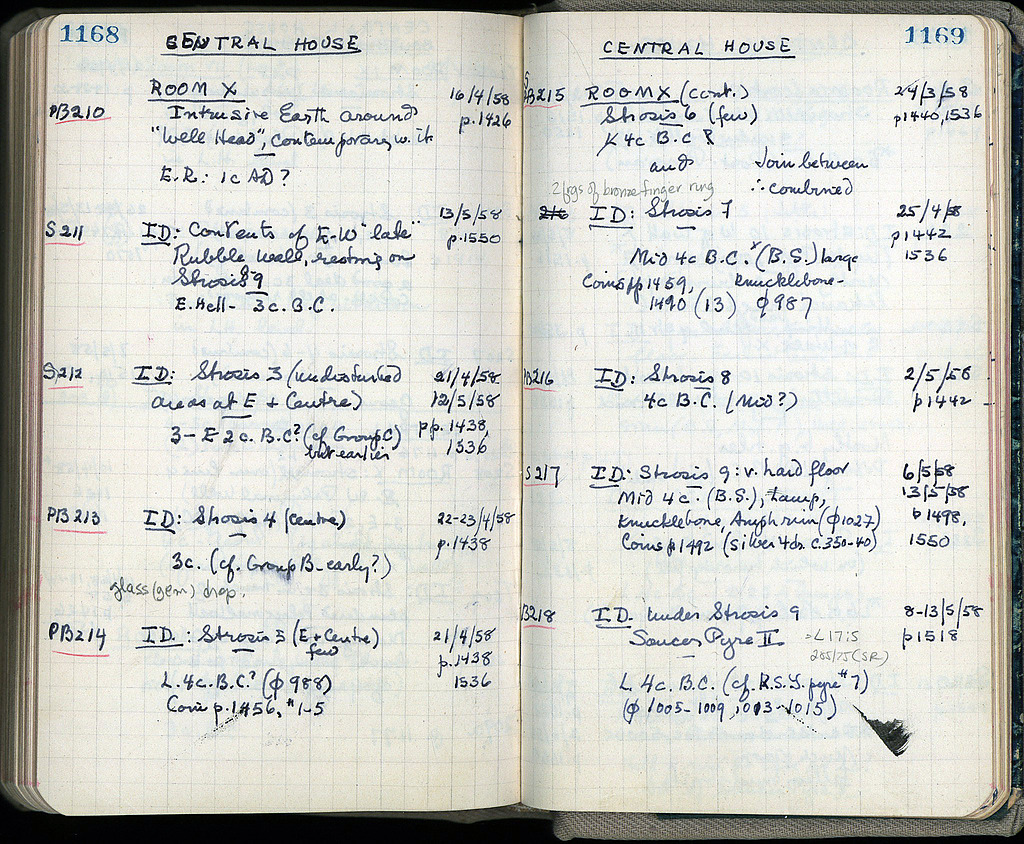 1168
CENTRAL HOUSE
ROOM X 16/4/58
PB210 Intrusive Earth around p.1426
"Well Head", contemporary w. it
E.R.: 1c AD?
13/5/58
S211 ID: Contents of E-W "late" p.1550
Rubble wall, resting on
Strosis 9
E. Hell - 3c. B.C.
S212 ID: Strosis 3 (undisturbed 21/4/58
areas at E + Centre) 12/5/58
3 - E 2c. B.C? (cf Group C) pp. 1438,
but earlier 1536
PB213 ID: Strosis 4 (centre) 22-23/4/58
p.1438
3c. (cf. Group B - early?)
glass (gem) drop.
PB214 ID.: Strosis 5 (E + Centre) 21/4/58
few p.1438
L. 4c. B.C? (φ 988) 1536
Coin p.1456, #1-5
1169
CENTRAL HOUSE
B215 ROOM X (cont.) 24/3/58
Strosis 6 (few) p1440, 1536
4c B.C ?
and Join between
2 frgs of bronze finger ring ∴ combined
216 ID: Strosis 7 25/4/58
p1442
Mid 4c B.C. (B.S.) large 1536
Coins pp 1459, knucklebone -
1490 (13) φ 987
B216 ID: Strosis 8 2/5/58
4c B.C. (Mid?) p1442
S217 ID: Strosis 9: v. hard floor 6/5/58
Mid 4c. (B.S.), stamp, 13/5/58
knucklebone, Amph rim (φ1027) p1498,
Coins p1492 (silver 4 dr. c. 350-40) 1550
B218 ID. Under Strosis 9 8-13/5/58
Saucer Pyre II = L 17:5 p1518
285/75 (SR)
L. 4c. B.C. (cf. R.S.Y. pyre #7)
(φ 1005-1009, 1013-1015)